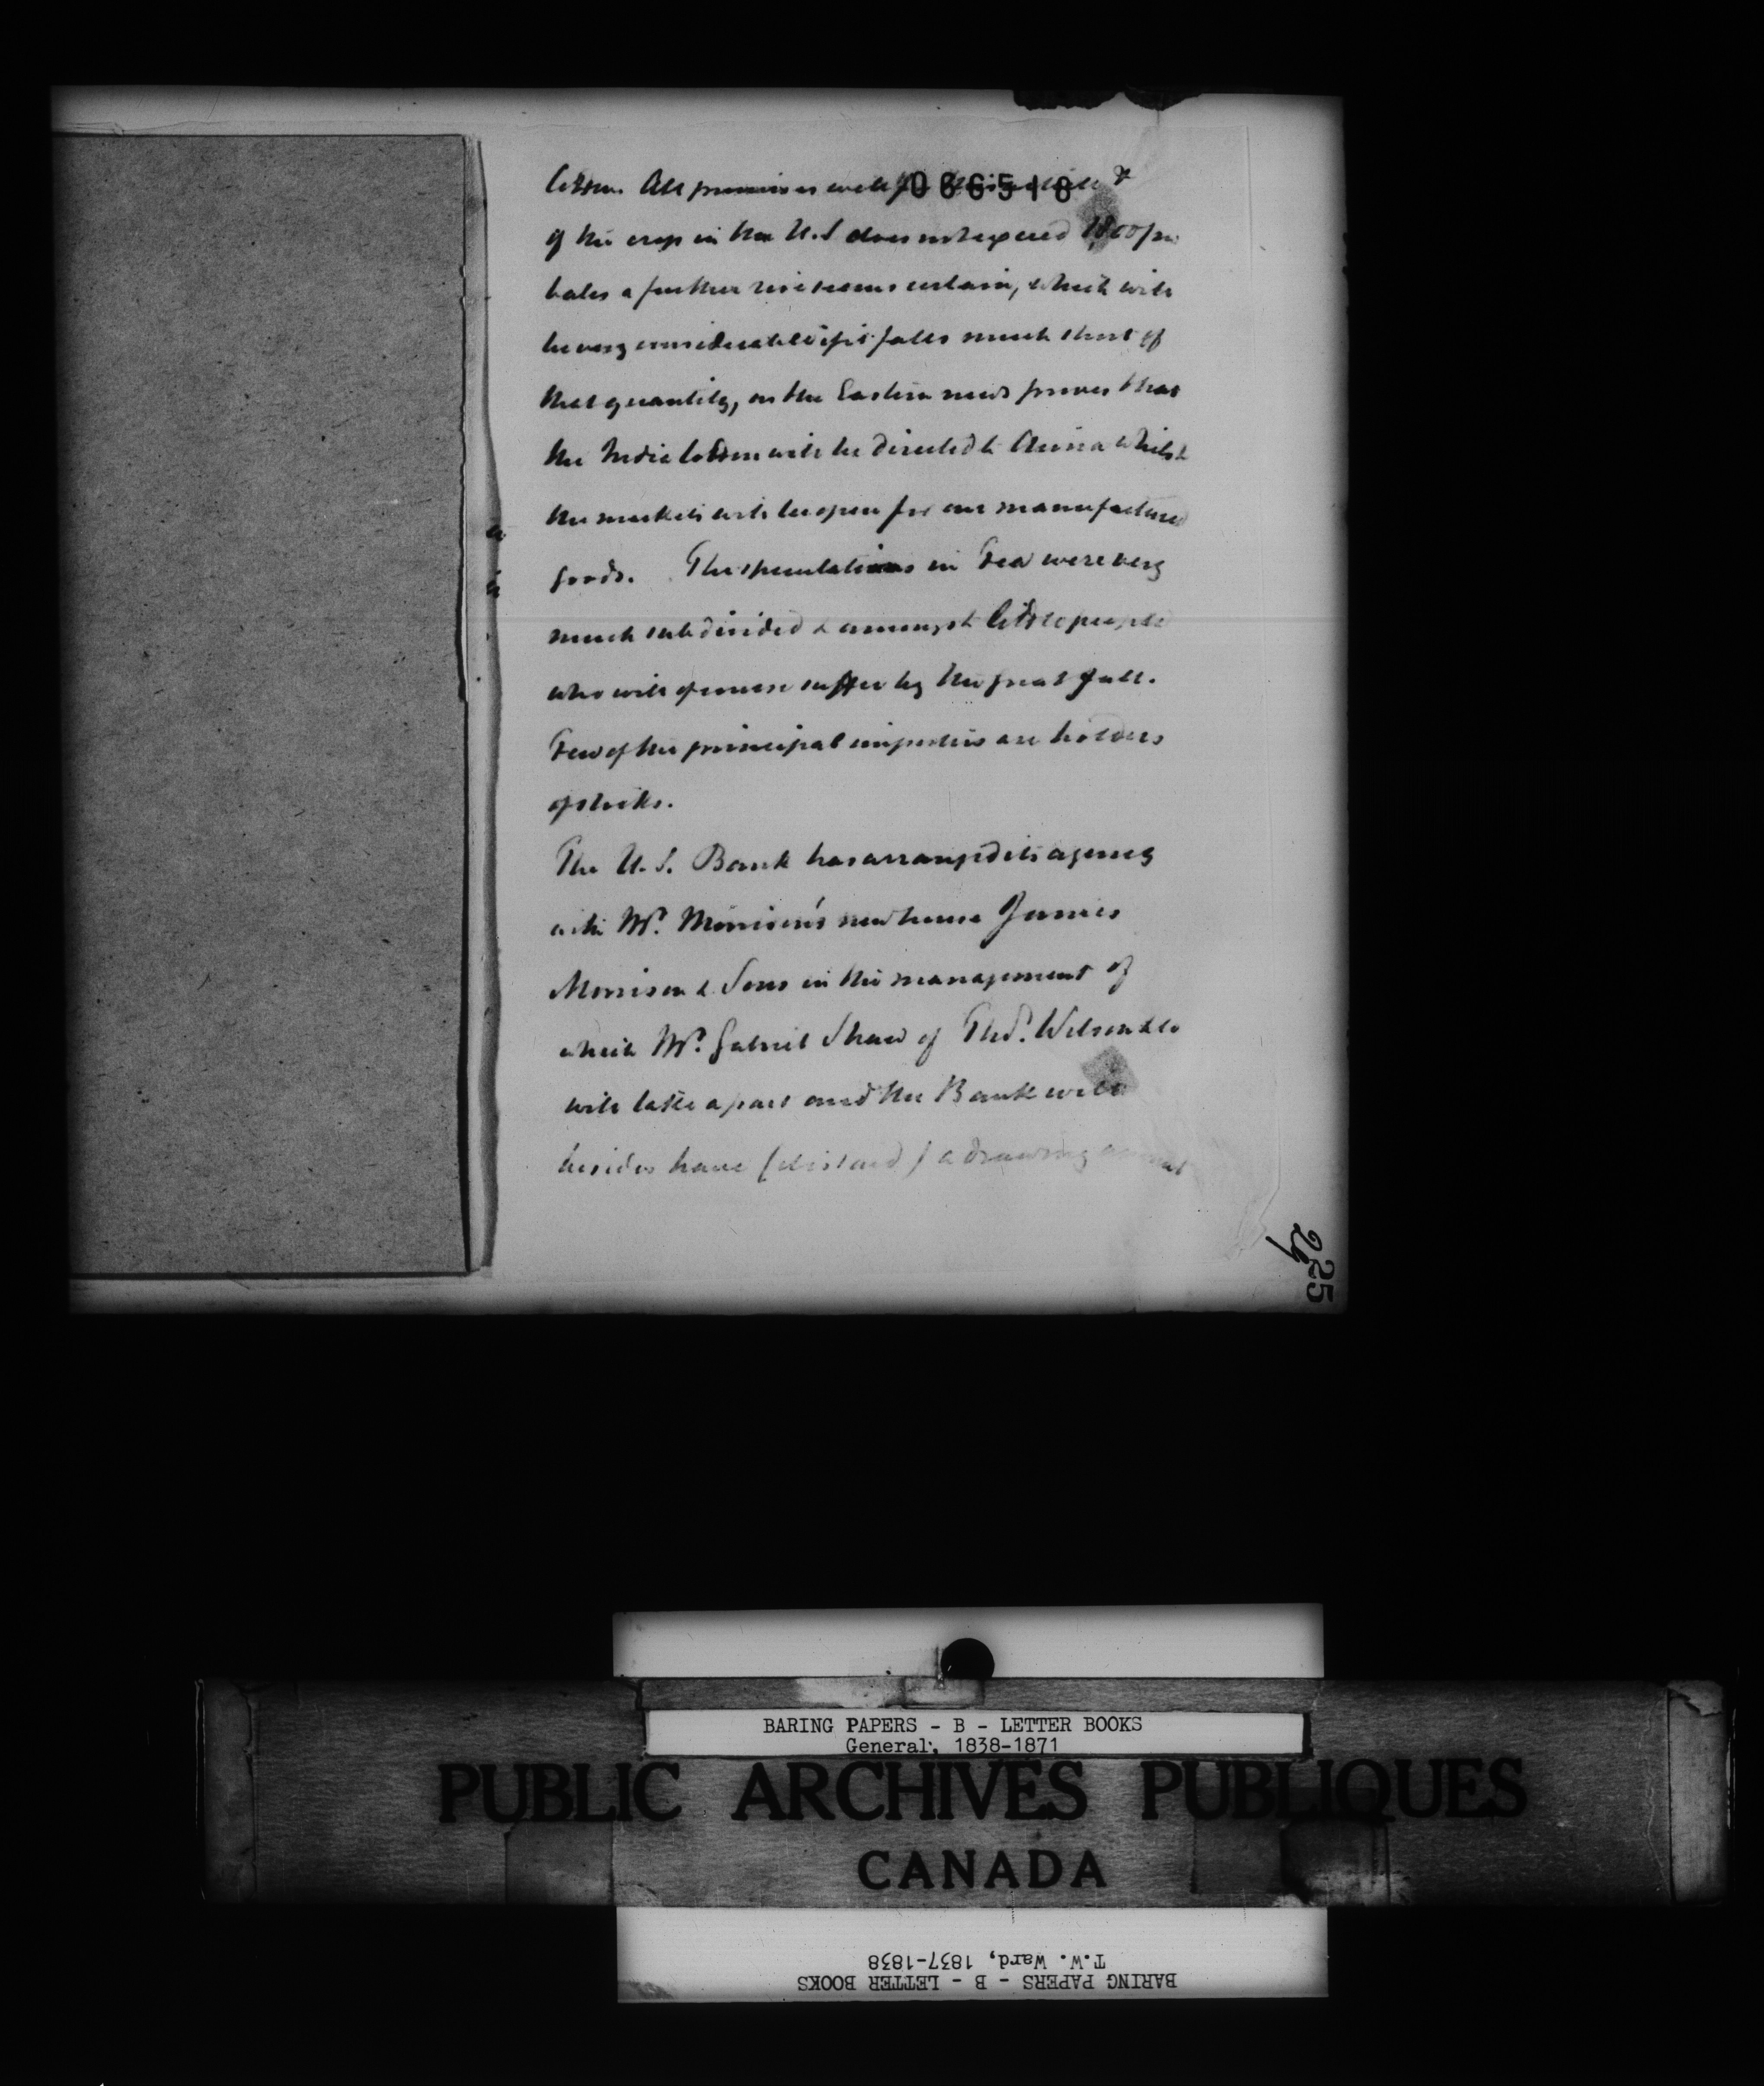 Cotton. All promises well for 066518 &
if the crop in the U.S does not exceed 1800/m
bales a further rise seems certain, which will
be very considerable if it falls much short of
that quantity, as the Eastern news proves that
the India Cotton will be directed to China whilst
the markets will be open for our manufactured
goods. The speculations in Tea were very
much subdivided & amongst little people
who will of course suffer by the great fall.
Few of the principal importers are holders
of stocks.
The U.S. Bank has arranged its agency
with Mr. Morrison's new house James
Morrison & Sons in the management of
which Mr. Gabriel Shaw of Thos. Wilson & Co
will take a part and the Bank will
besides have (it is said) a drawing account
225
BARING PAPERS - B - LETTER BOOKS
General, 1838-1871
PUBLIC ARCHIVES PUBLIQUES
CANADA
T.W. Ward, 1837-1838
BARING PAPERS - B - LETTER BOOKS